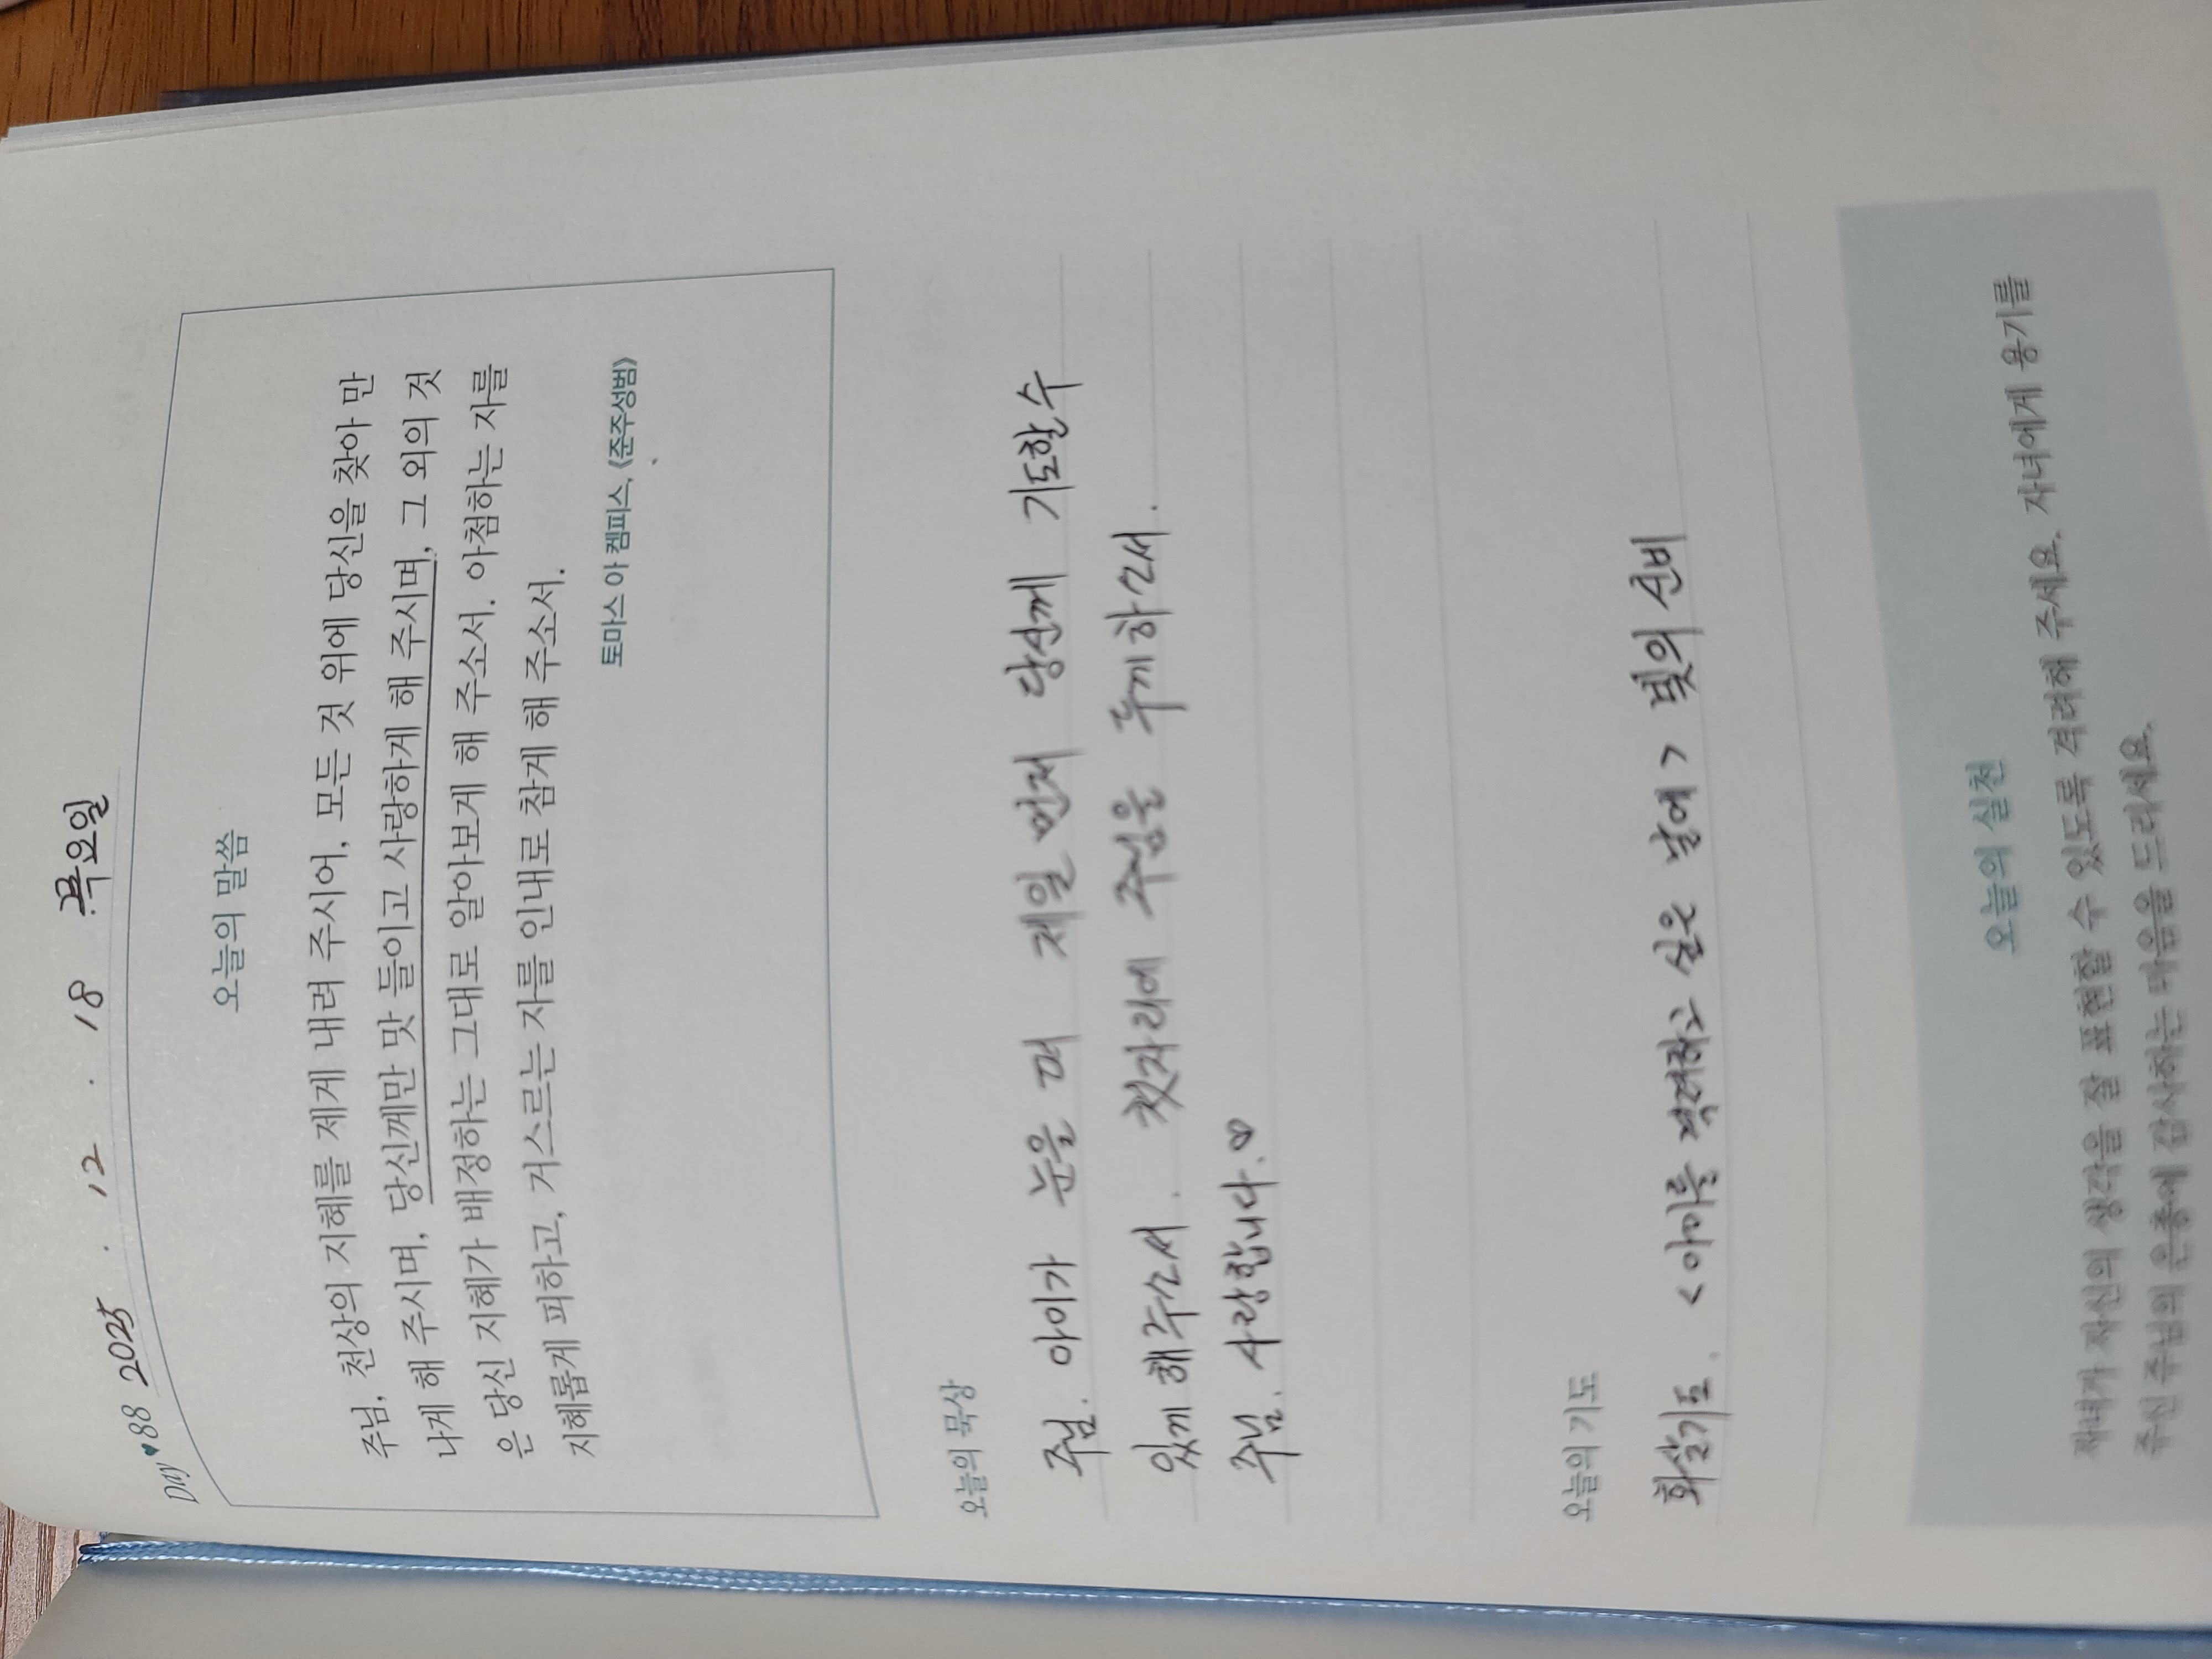 Day♥88 2025 . 12 . 18 목요일
오늘의 말씀
주님, 천상의 지혜를 제게 내려 주시어, 모든 것 위에 당신을 찾아 만
나게 해 주시며, 당신께만 맛 들이고 사랑하게 해 주시며, 그 외의 것
은 당신 지혜가 배정하는 그대로 알아보게 해 주소서. 아첨하는 자를
지혜롭게 피하고, 거스르는 자를 인내로 참게 해 주소서.
토마스 아 켐피스, 《준주성범》
오늘의 묵상
주님. 아이가 눈을 떠 제일 먼저 당신께 기도할수
있께 해주소서. 첫자리에 주님을 두께하소서.
주님. 사랑합니다.♡
오늘의 기도
화살기도. <아이를 격려하고 싶은 날에> 빛의 신비
오늘의 실천
자녀가 자신의 생각을 잘 표현할 수 있도록 격려해 주세요. 자녀에게 용기를
주신 주님의 은총에 감사하는 마음을 드리세요.